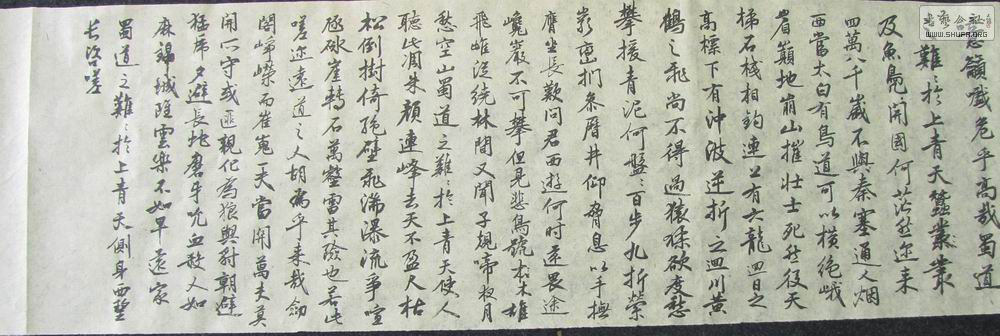 书艺公社
WWW.SHUFA.ORG
籲戲危乎高哉蜀道
難〻於上青天蠶叢叢
及魚鳧開國何茫然尔来
四萬八千歲不與秦塞通人烟
西當太白有鳥道可以橫絕峨
眉巔地崩山摧壯士死然後天
梯石棧相鈎連上有六龍迴日之
高標下有沖波逆折之迴川黃
鶴之飛尚不得過猿猱欲度愁
攀援青泥何盤〻百步九折縈
巖巒捫參曆井仰脅息以手撫
膺坐長歎問君西遊何時還畏途
巉巖不可攀但見悲鳥號古木雄
飛雌從繞林間又聞子規啼夜月
愁空山蜀道之難〻於上青天使人
聽此凋朱顏連峰去天不盈尺枯
松倒樹倚絕壁飛湍瀑流爭喧
豗砯崖轉石萬壑雷其險也若此
嗟尔遠道之人胡為乎来哉劍
閣崢嶸而崔嵬一夫當關萬夫莫
開所守或匪親化為狼與豺朝避
猛虎夕避長蛇磨牙吮血殺人如
麻錦城雖雲樂不如早還家
蜀道之難〻於上青天側身西望
長咨嗟